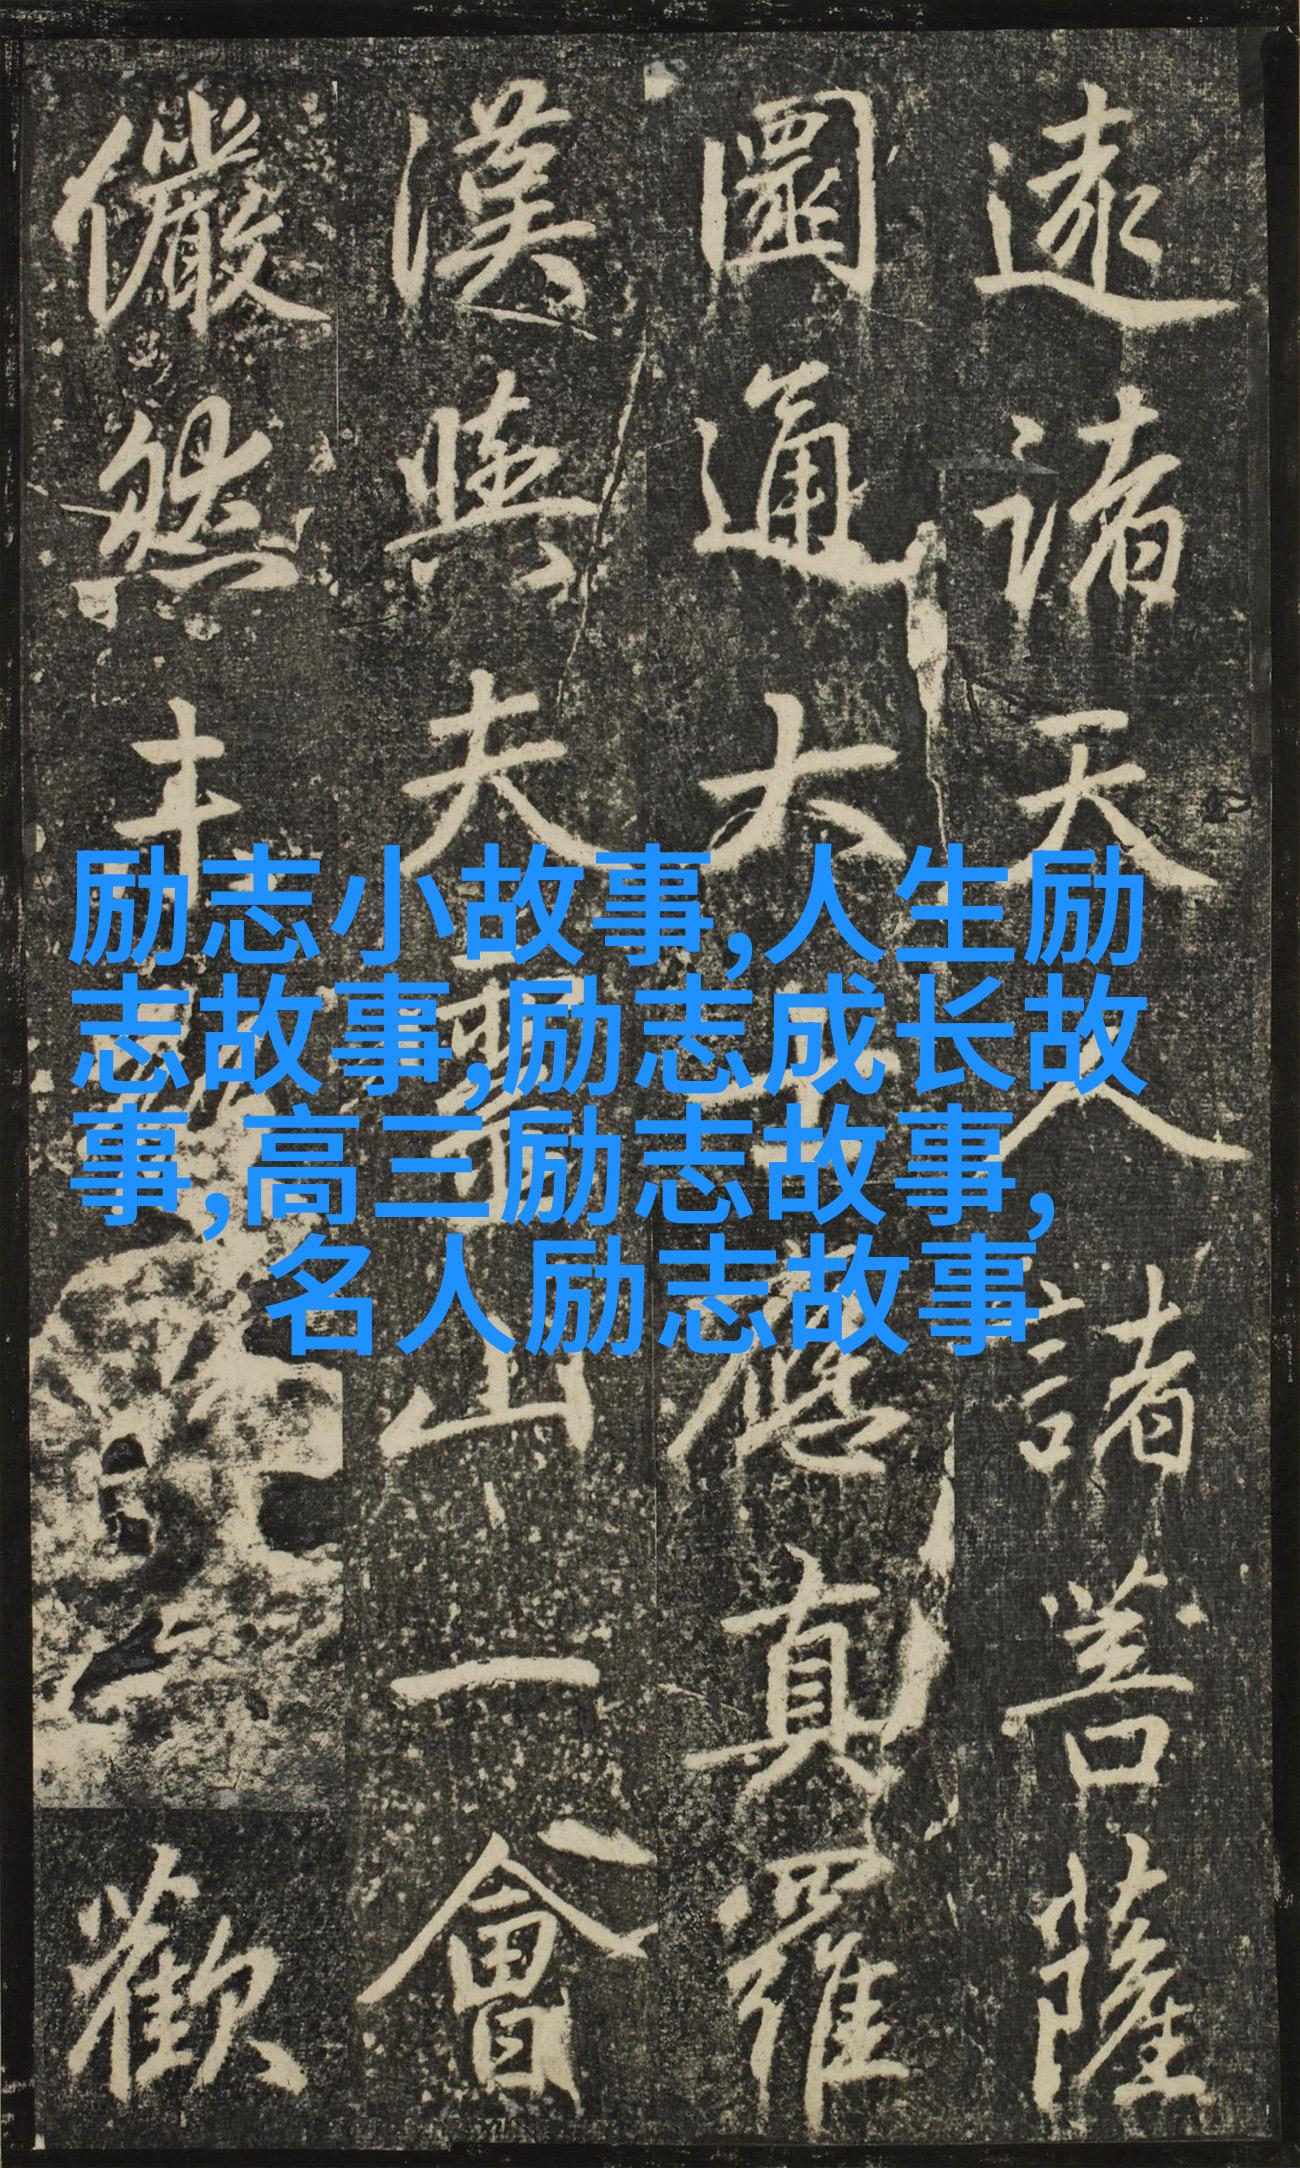 遠諸天人諸菩薩
圓通大士應真羅
漢與夫山一會
儼然歡
励志小故事,人生励
志故事,励志成长故
事,高三励志故事,
名人励志故事